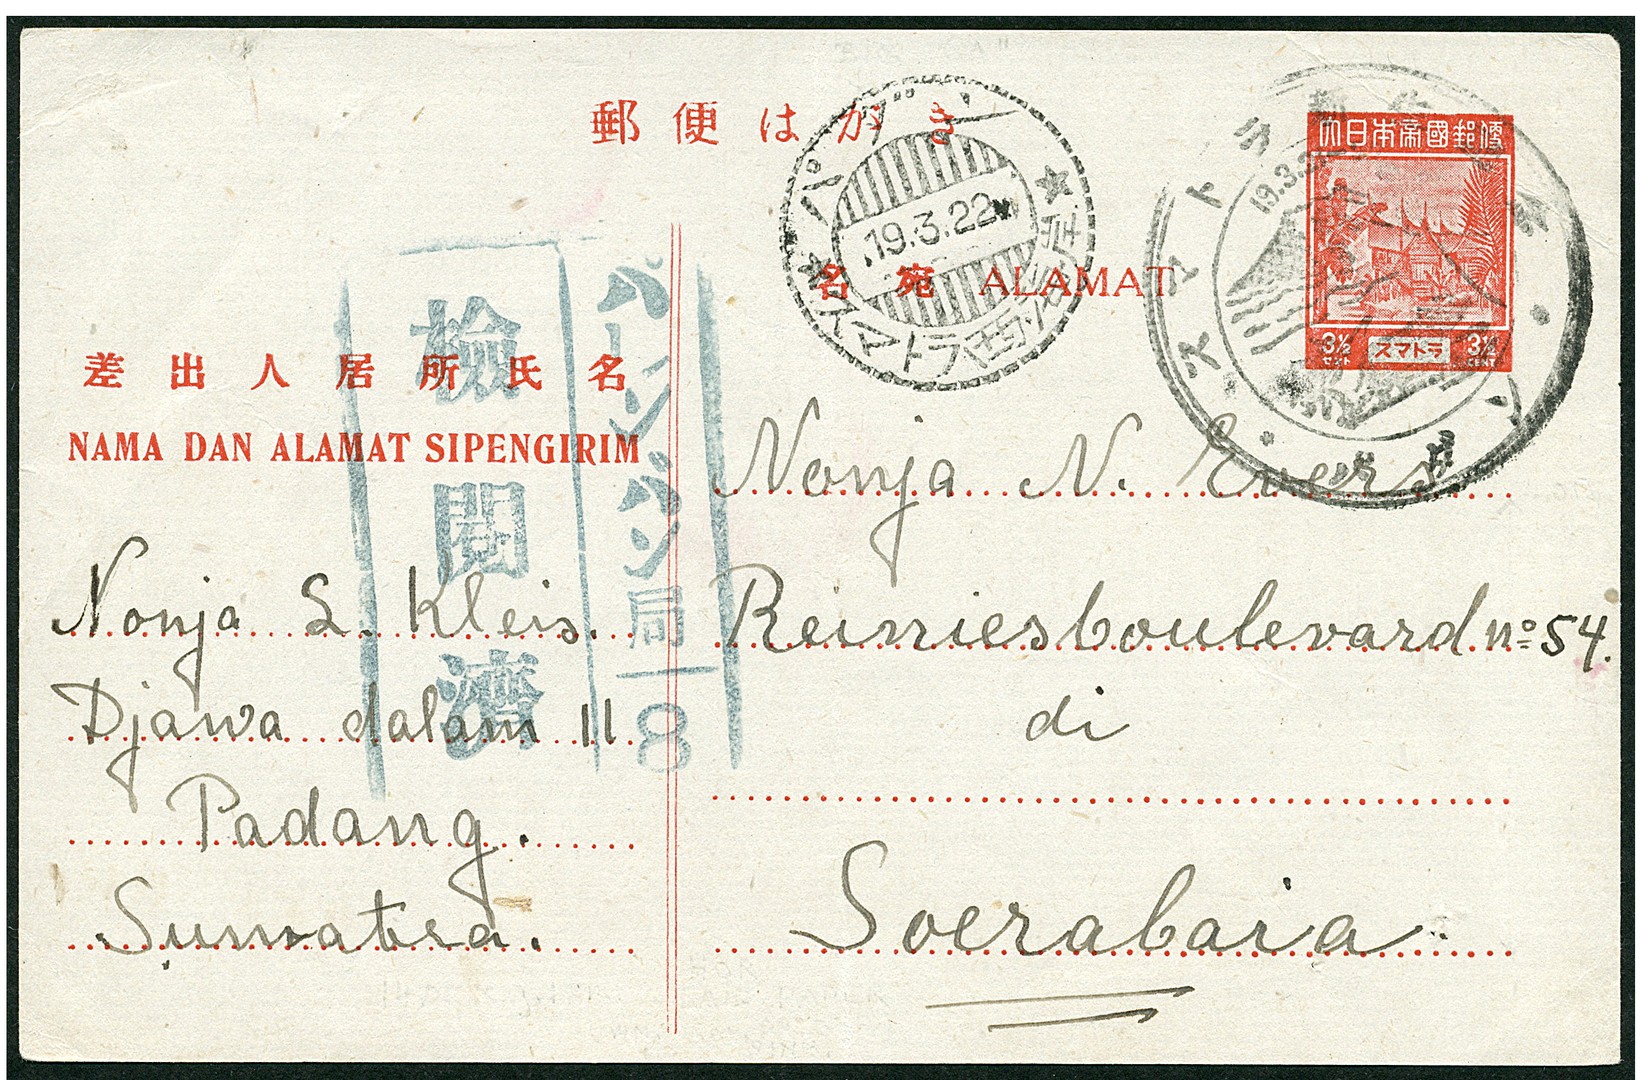 郵便はがき
大日本帝國郵便
3½ スマトラ 3½
セント CENT
パダン
19.3.22
スマトラ西海岸
スマトラ
19.3.22
名宛 ALAMAT
差出人居所氏名
NAMA DAN ALAMAT SIPENGIRIM
検閲済
局
8
Nonja L. Kleis.
Djawa dalam 11
Padang.
Sumatra.
Nonja N. Evers
Reiniesboulevard no 54.
di
Soerabaia